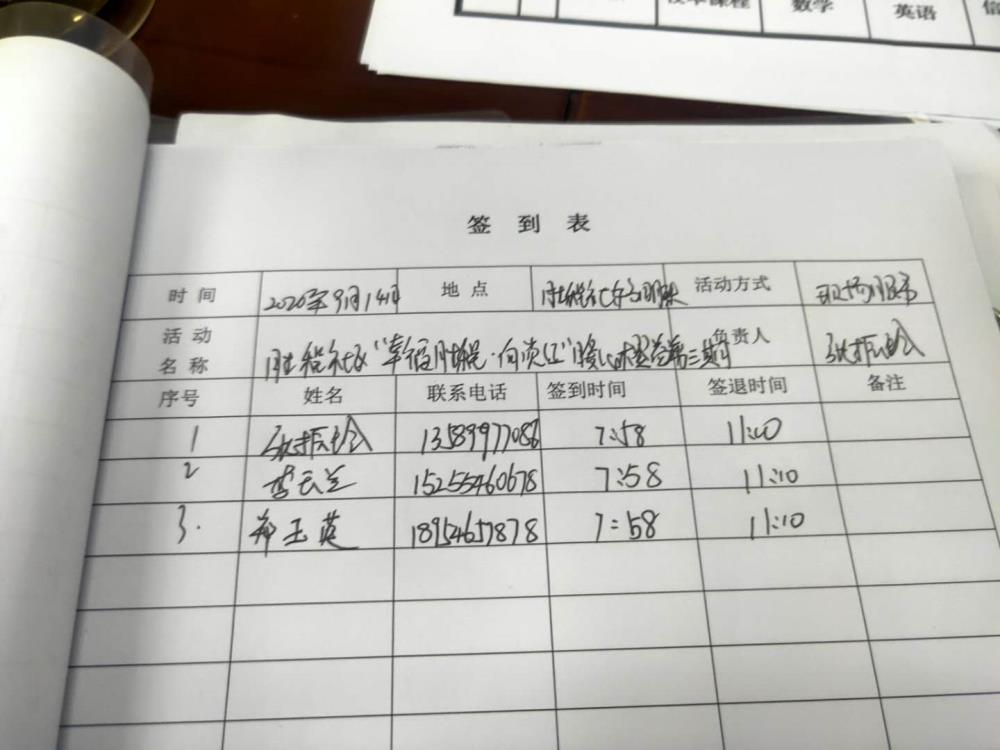 数学 英语
签 到 表
时 间 2020年9月14日 地 点 活动方式 现场服务
活 动 负责人 张振玲
名 称
序号 姓名 联系电话 签到时间 签退时间 备注
1 张振玲 13589977086 7:58 11:10
2 李云兰 15255460678 7:58 11:10
3. 郑玉英 18954657878 7:58 11:10